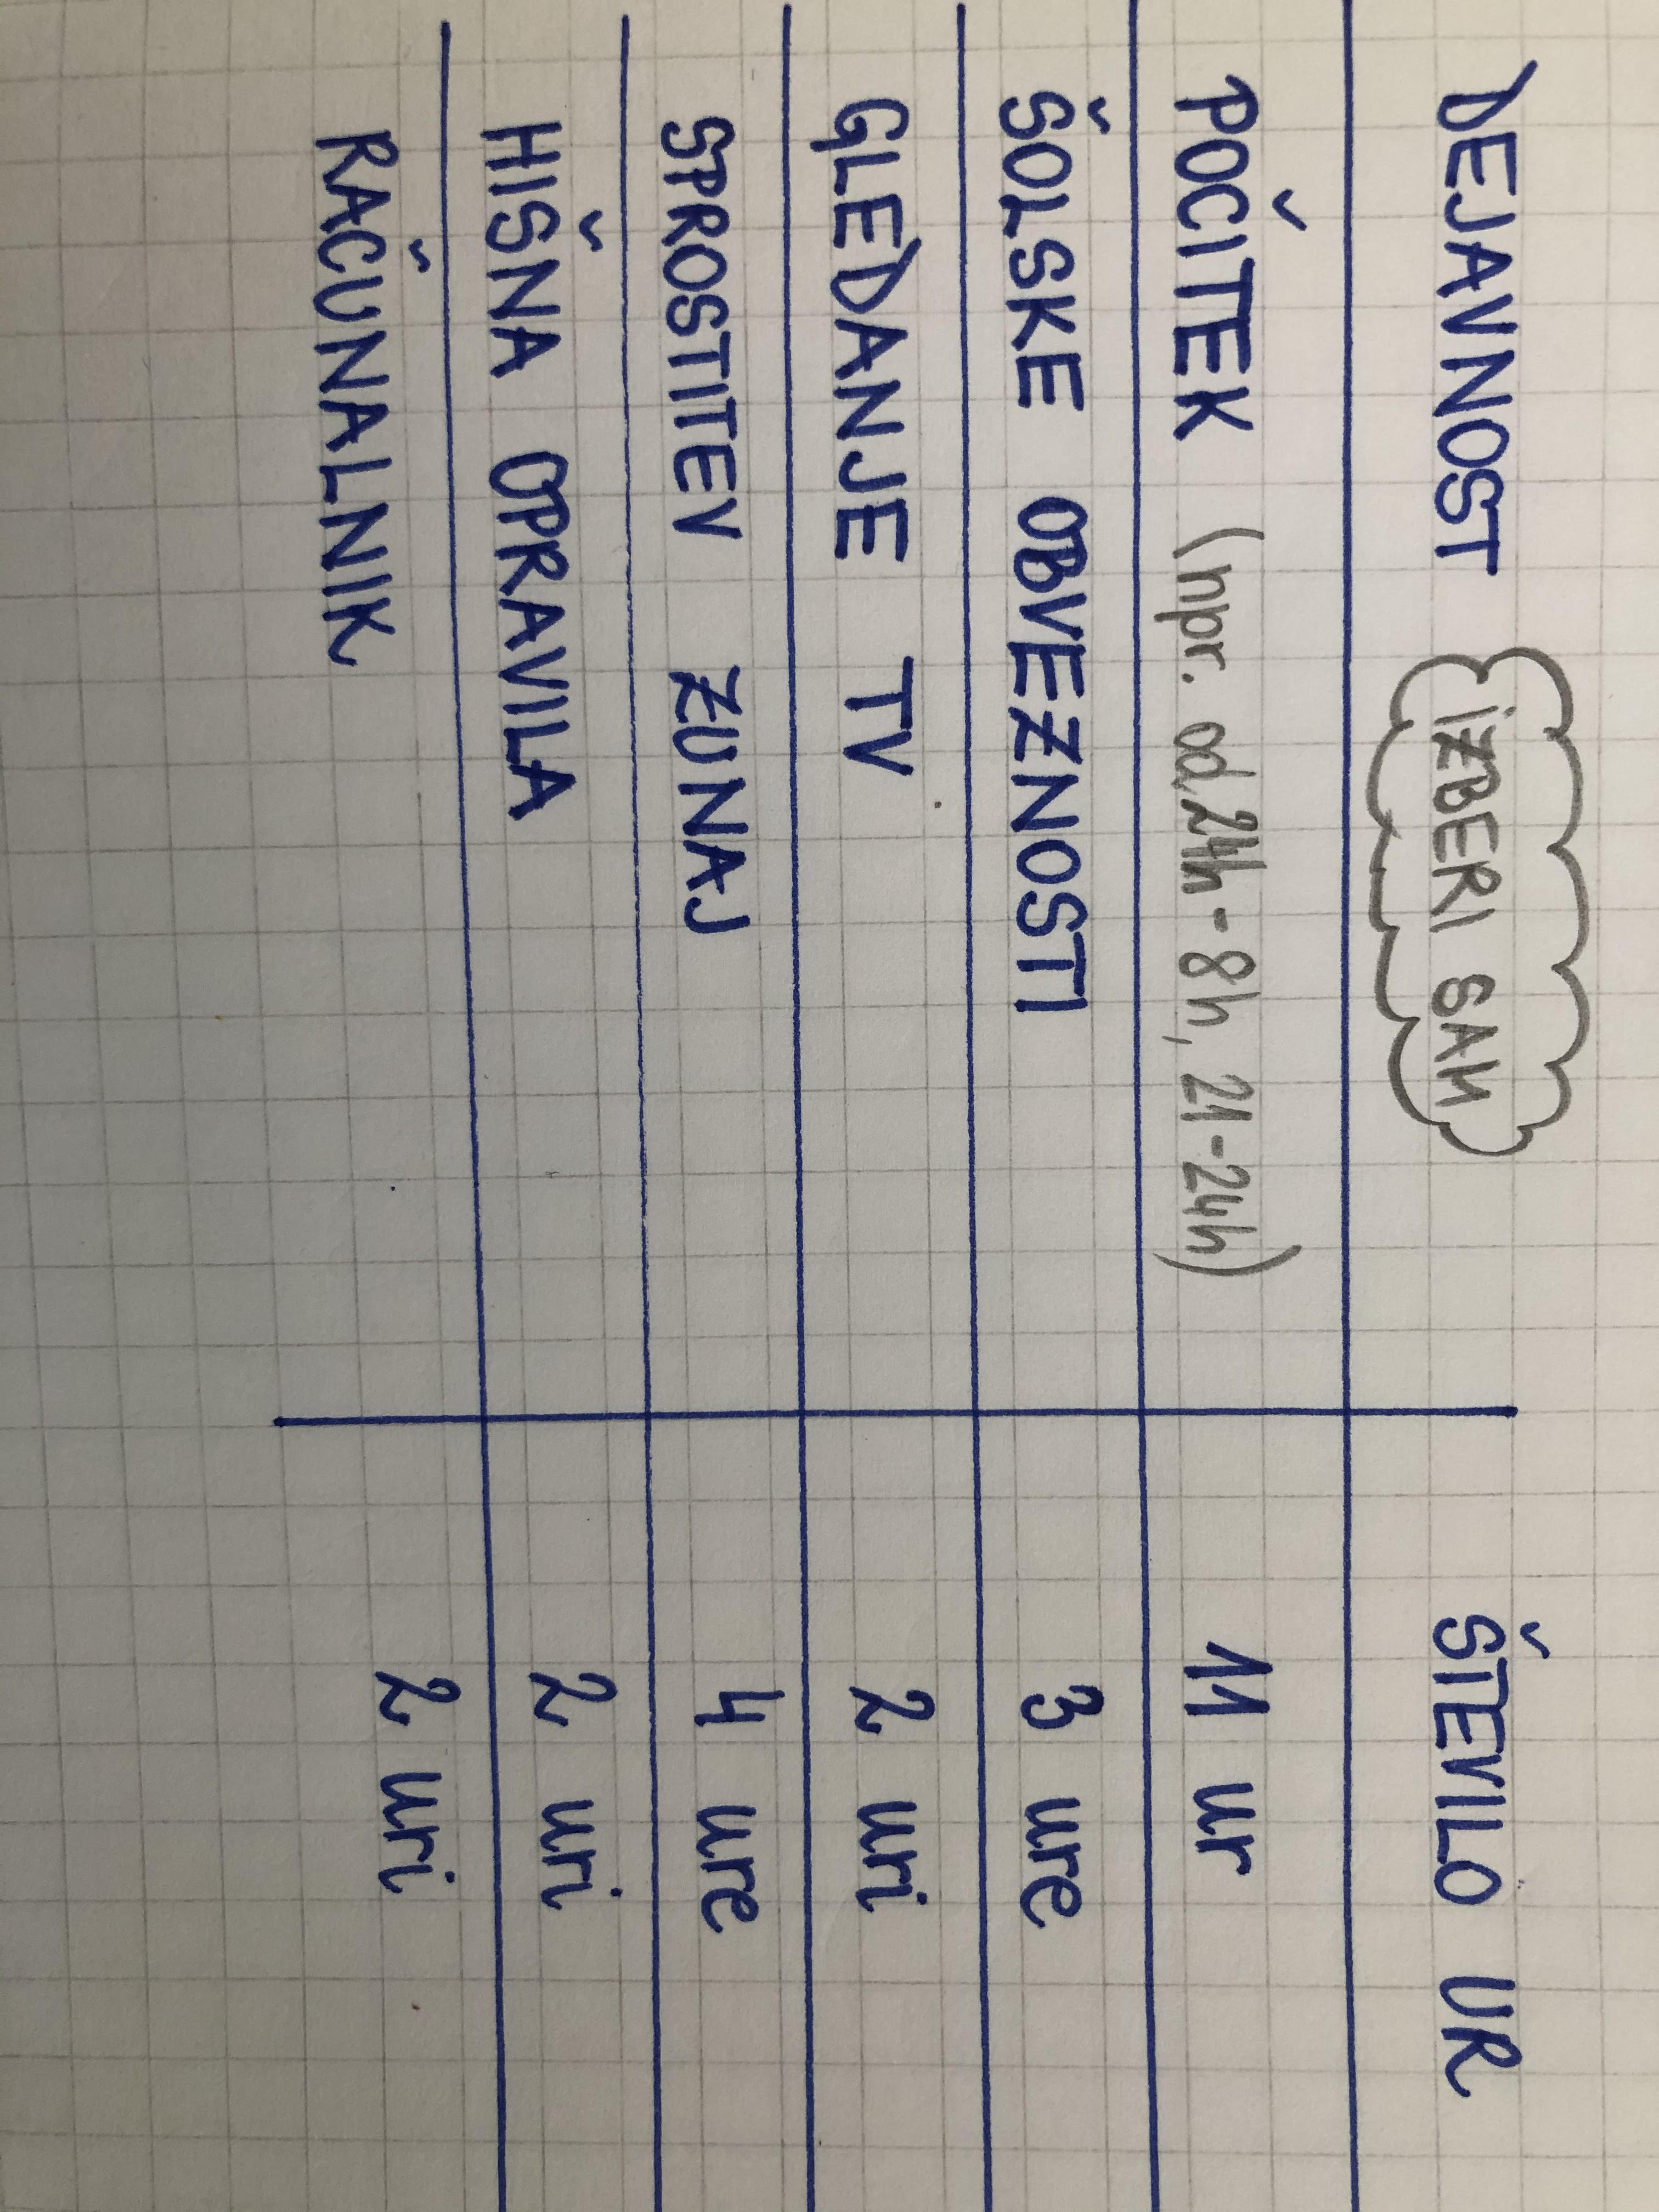 DEJAVNOST IZBERI SAM ŠTEVILO UR
POČITEK (npr. od 24h-8h, 21-24h) 11 ur
ŠOLSKE OBVEZNOSTI 3 ure
GLEDANJE TV 2 uri
SPROSTITEV ZUNAJ 4 ure
HIŠNA OPRAVILA 2 uri
RAČUNALNIK 2 uri